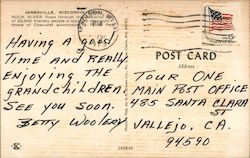 JANESVILLE, WISCONSIN
ROCK RIVER flows through this
of 50,000 friendly people in
Home of Chevrolet automobiles
HAVING A GOOD
TIME AND REALLY
ENJOYING THE
GRANDCHILDREN.
SEE YOU SOON.
BETTY WOOLERY
POST CARD
Address
TOUR ONE
MAIN POST OFFICE
485 SANTA CLARA
ST
VALLEJO, CA.
94590
K